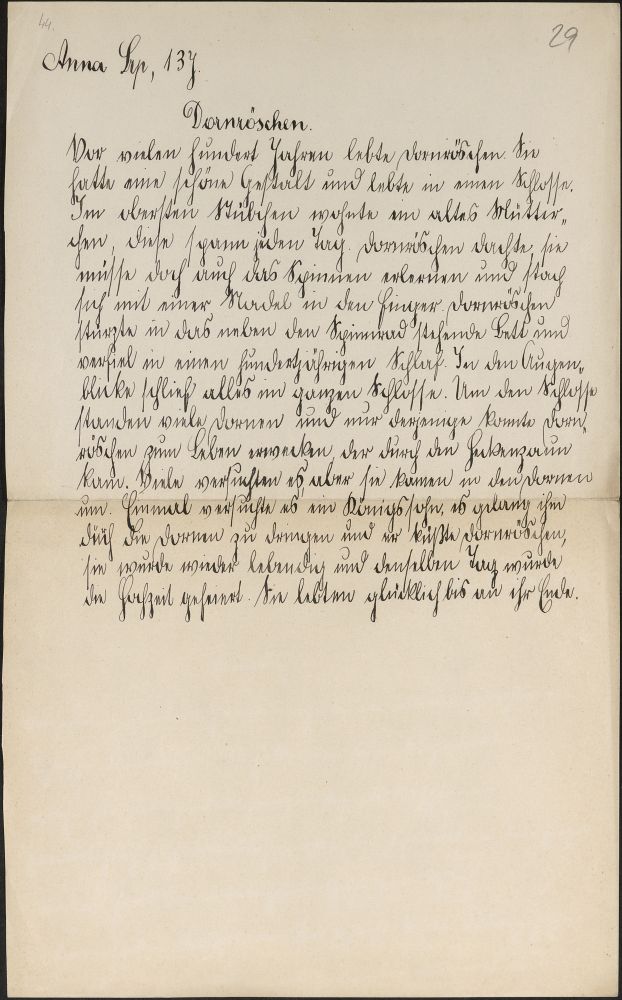 44.
29
Anna Sep, 137.
Dornröschen.
Vor vielen hundert Jahren lebte Dornröschen. Sie
hatte eine schöne Gestalt und lebte in einen Schlosse.
Im obersten Stübchen wohnte ein altes Mütter„
chen, diese spann jeden Tag. Dornröschen dachte, sie
müsse doch auch das Spinnen erlernen und stach
sich mit einer Nadel in den Finger. Dornröschen
stürzte in das neben den Spinnrad stehende Bett und
verfiel in einen hundertjährigen Schlaf. In den Augen„
blicke schlief alles im ganzen Schlosse. Um den Schlosse
standen viele Dornen und nur derjenige konnte Dorn„
röschen zum Leben erwecken, der durch den Heckenzaun
kam. Viele versuchten es, aber sie kamen in den Dornen
um. Einmal versuchte es ein Königssohn, es gelang ihm
durch die Dornen zu dringen und er küßte Dornröschen,
sie wurde wieder lebendig und denselben Tag wurde
die Hochzeit gefeiert. Sie lebten glücklich bis an ihr Ende.